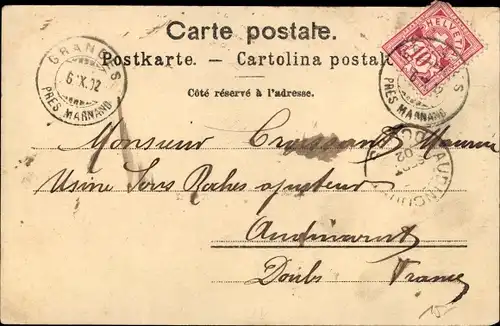 Carte postale.
Postkarte. — Cartolina postale
Côté réservé à l'adresse.
GRANGES
6.X.02
PRÈS MARNAND
HELVETIA
10
GRANGES
PRÈS MARNAND
AUDINCOURT
02
Monsieur Croissant Maurice
Usine Sous Roches ajusteur
Audincourt
Doubs France
15